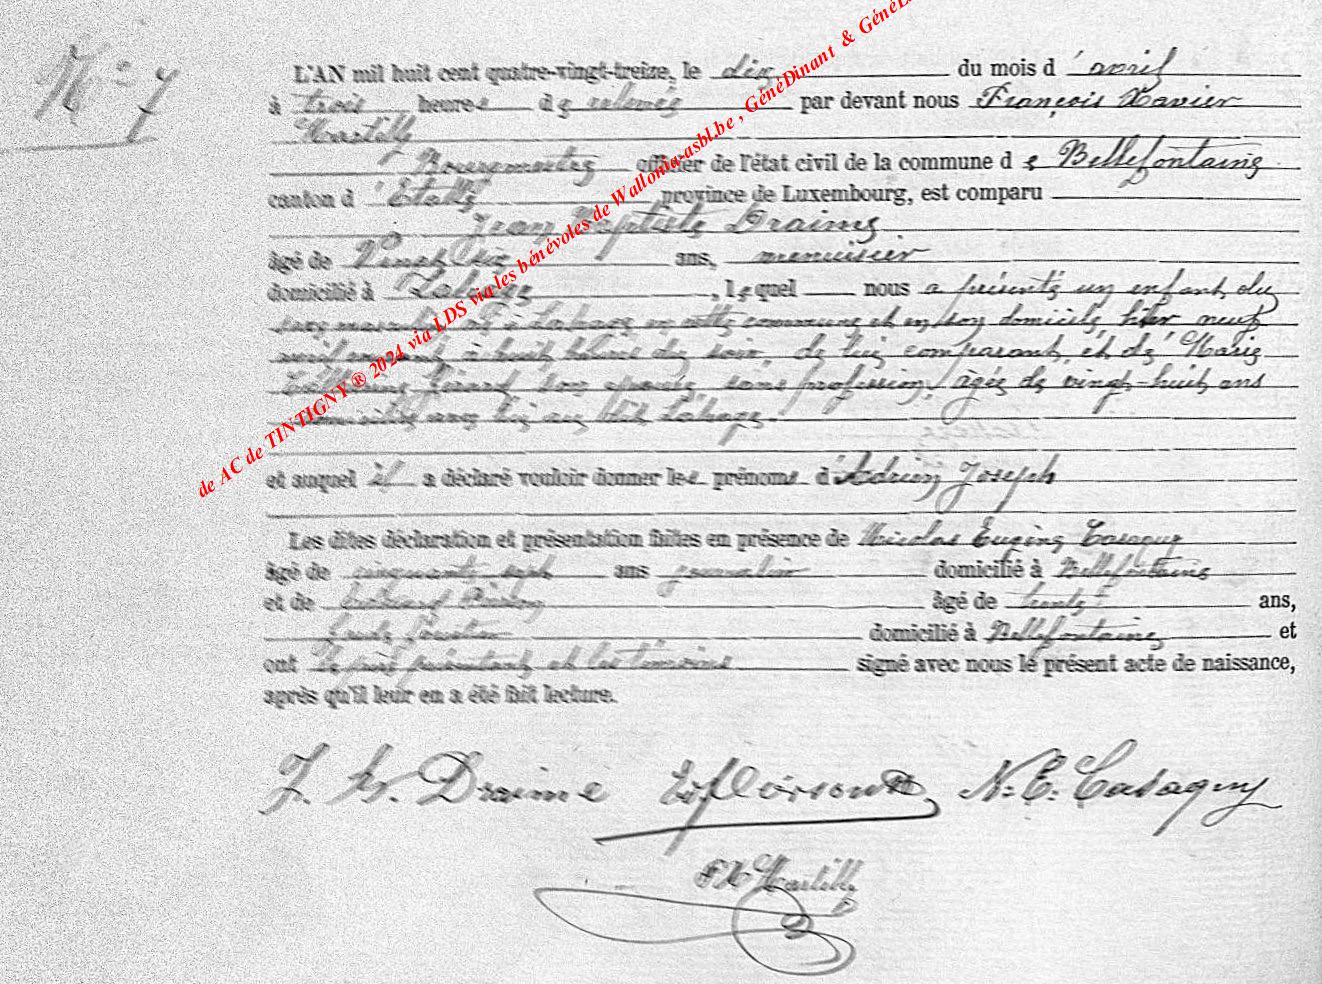 N° 7
L'AN mil huit cent quatre-vingt-treize, le dix du mois d'avril
à trois heures de relevée par devant nous François Xavier
Bourgmestre officier de l'état civil de la commune de Bellefontaine
canton d'Etalle province de Luxembourg, est comparu
Jean Baptiste Draime
âgé de Vingt six ans, menuisier
domicilié à Lahage, lequel nous a présenté un enfant du
sexe masculin né à Lahage en cette commune et en son domicile, hier neuf
avril courant à huit heures du soir, de lui comparant, et de Marie
Gérard son épouse sans profession, âgée de vingt-huit ans
domiciliée avec lui au dit Lahage.
et auquel il a déclaré vouloir donner les prénoms d'Adrien Joseph
Les dites déclaration et présentation faites en présence de Nicolas Eugène Casagny
âgé de cinquante sept ans journalier domicilié à Bellefontaine
et de âgé de trente ans,
domicilié à Bellefontaine et
ont le père présentant et les témoins signé avec nous le présent acte de naissance,
après qu'il leur en a été fait lecture.
J. B. Draime N. E. Casagny
de AC de TINTIGNY ® 2024 via LDS via les bénévoles de Wallonia-asbl.be , GénéDinant & GénéL